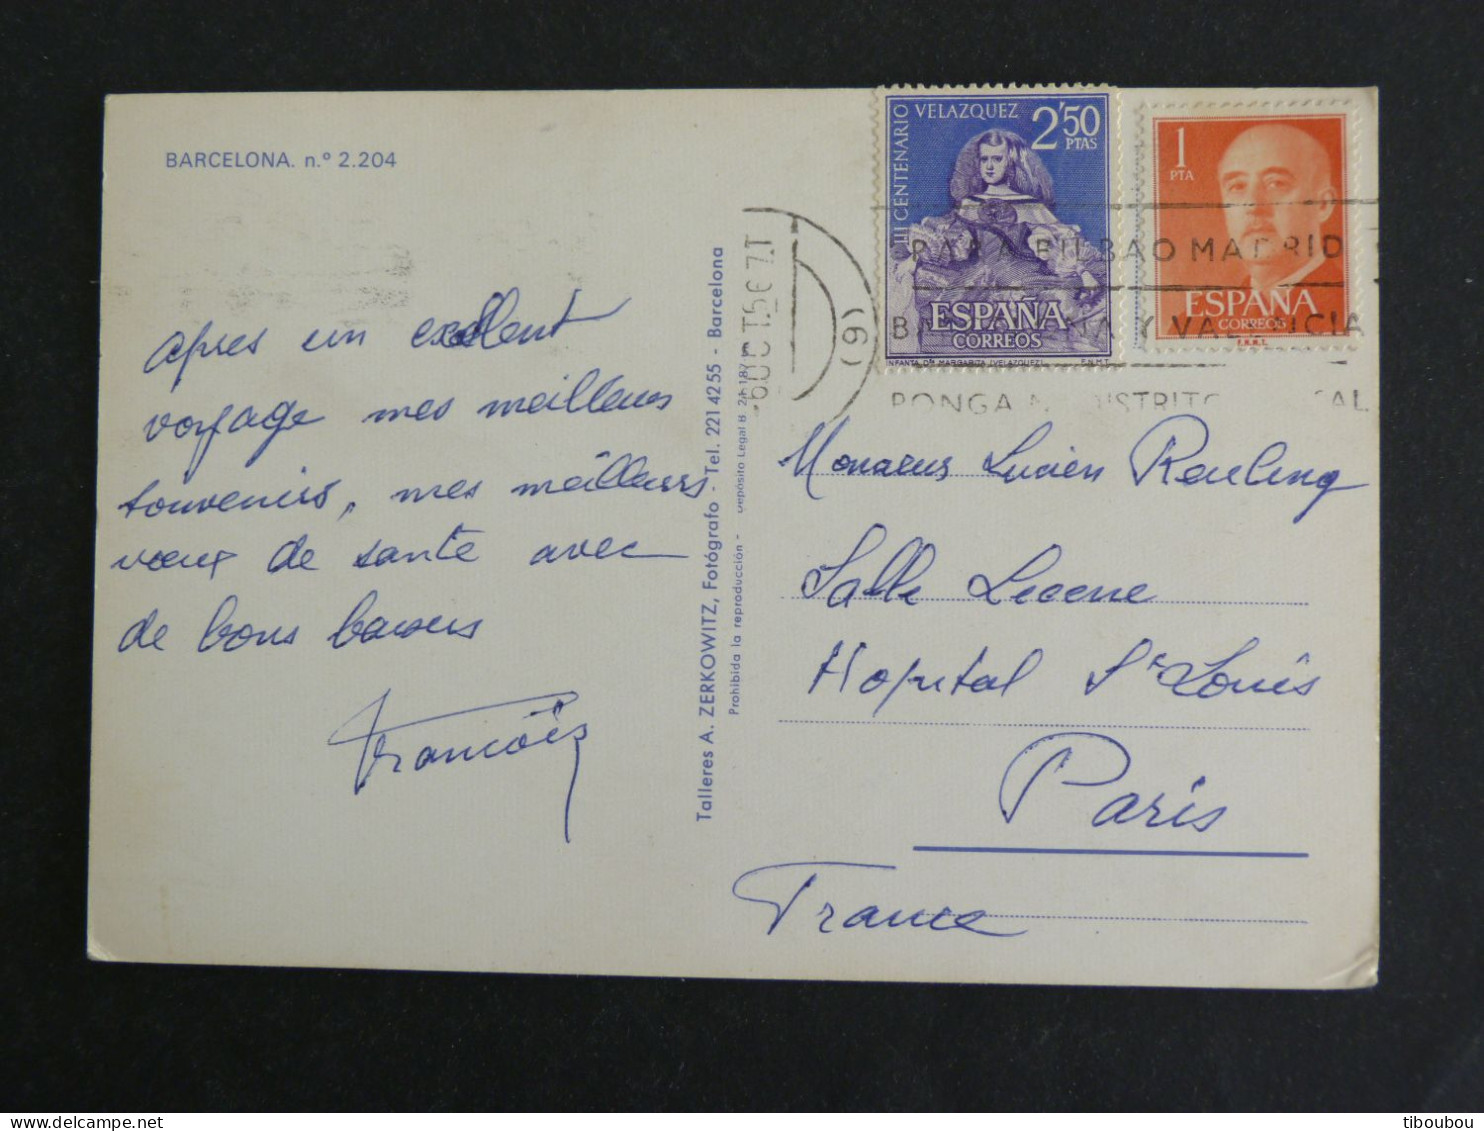 BARCELONA. n.º 2.204
apres un excellent
voyage mes meilleurs
souvenirs, mes meilleurs
vœux de sante avec
de bons baisers
François
Talleres A. ZERKOWITZ, Fotógrafo - Tel. 221 42 55 - Barcelona
Prohibida la reproducción - Depósito Legal B.
III CENTENARIO VELAZQUEZ
2'50
PTAS
ESPAÑA
CORREOS
INFANTA Dña MARGARITA (VELAZQUEZ) F.N.M.T.
1
PTA
ESPAÑA
CORREOS
F.N.M.T.
(6)
PARA BILBAO MADRID
BARCELONA Y VALENCIA
PONGA DISTRITO POSTAL
Monsieur Lucien Reuling
Salle Lecene
Hopital St Louis
Paris
France
tiboubou